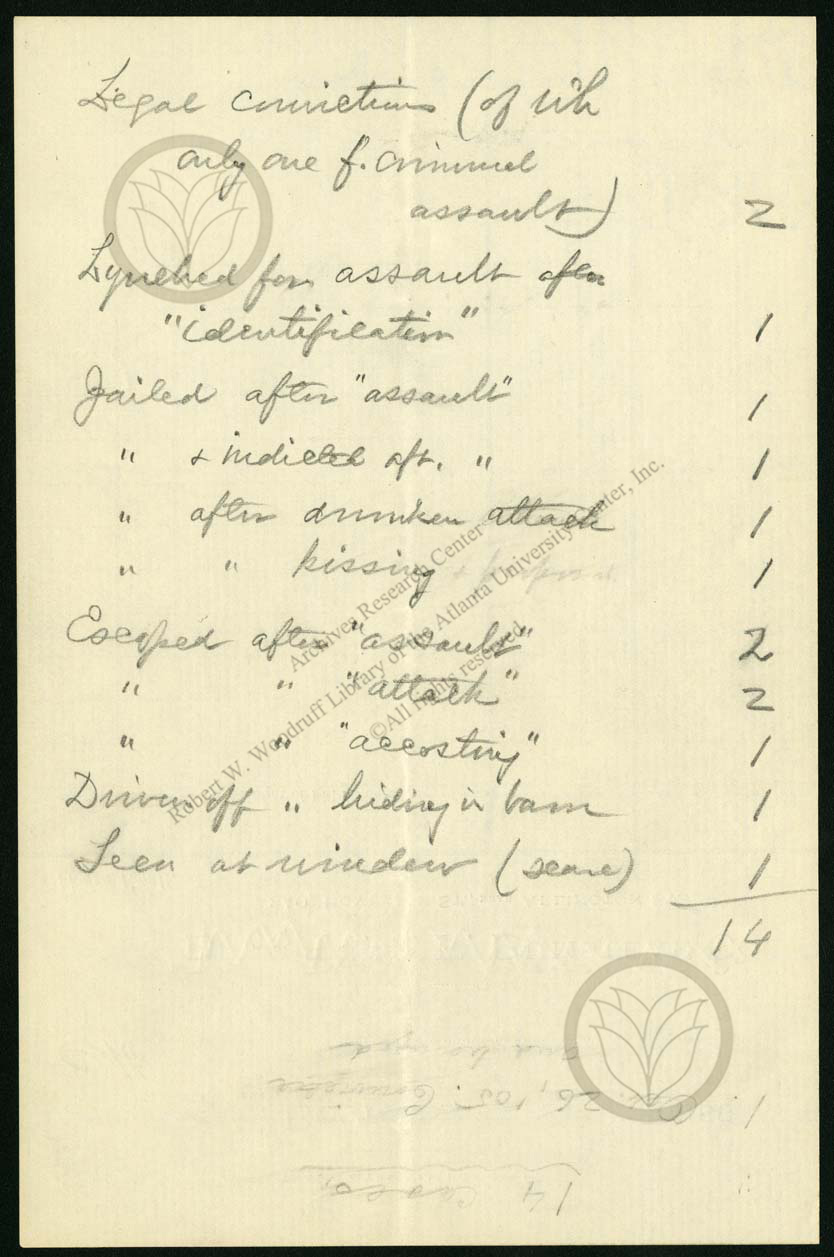 Legal convictions (of wh
only one f. criminal
assault) 2
Lynched for assault after
"identification" 1
Jailed after "assault" 1
" & indicted aft. " 1
" after drunken attack 1
" " kissing 1
Escaped after "assault" 2
" " "attack" 2
" " "accosting" 1
Driven off " hiding in barn 1
Seen at window (scare) 1
14
Archives Research Center
Robert W. Woodruff Library of the Atlanta University Center, Inc.
©All rights reserved